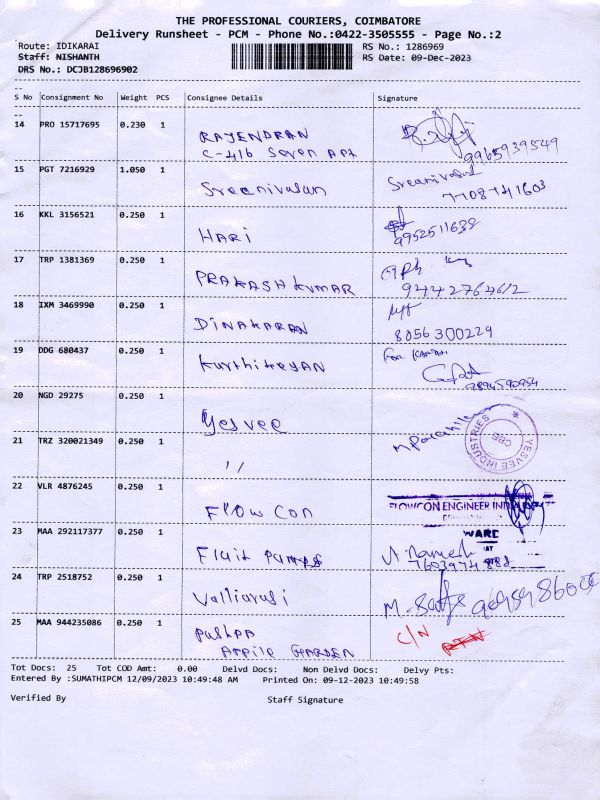 THE PROFESSIONAL COURIERS, COIMBATORE
Delivery Runsheet - PCM - Phone No.:0422-3505555 - Page No.:2
Route: IDIKARAI RS No.: 1286969
Staff: NISHANTH RS Date: 09-Dec-2023
DRS No.: DCJB128696902
S No Consignment No Weight PCS Consignee Details Signature
14 PRO 15717695 0.230 1 RAJENDRAN
C-416 Seven Apt 9965939549
15 PGT 7216929 1.050 1 Sreenivasan Sreenivasan
7708741603
16 KKL 3156521 0.250 1 HARI 9952511639
17 TRP 1381369 0.250 1 PRAKASH KUMAR 9442764612
18 IXM 3469990 0.250 1 DINAKARAN 8056300229
19 DDG 680437 0.250 1 Kurthikeyan For
9894590954
20 NGD 29275 0.250 1 Yesvee
YESVEE INDUSTRIES * CBE
21 TRZ 320021349 0.250 1 ,,
22 VLR 4876245 0.250 1 Flow Con FLOWCON ENGINEER
23 MAA 292117377 0.250 1 Fluit Pumps
24 TRP 2518752 0.250 1 Valliarasi
25 MAA 944235086 0.250 1 Pushpa C/N
GARDEN
Tot Docs: 25 Tot COD Amt: 0.00 Delvd Docs: Non Delvd Docs: Delvy Pts:
Entered By :SUMATHIPCM 12/09/2023 10:49:48 AM Printed On: 09-12-2023 10:49:58
Verified By Staff Signature